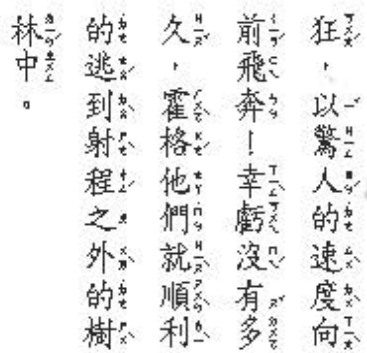 狂，以驚人的速度向
前飛奔！幸虧沒有多
久，霍格他們就順利
的逃到射程之外的樹
林中。